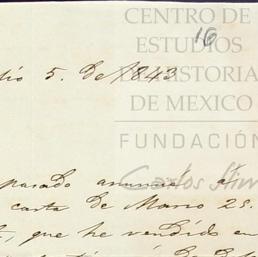 CENTRO DE
ESTUDIOS
DE HISTORIA
DE MEXICO
16
FUNDACIÓN
Carlos Slim
lio 5. de 1843
pasado anuncié a
carta de Marzo 25.
que he vendido en